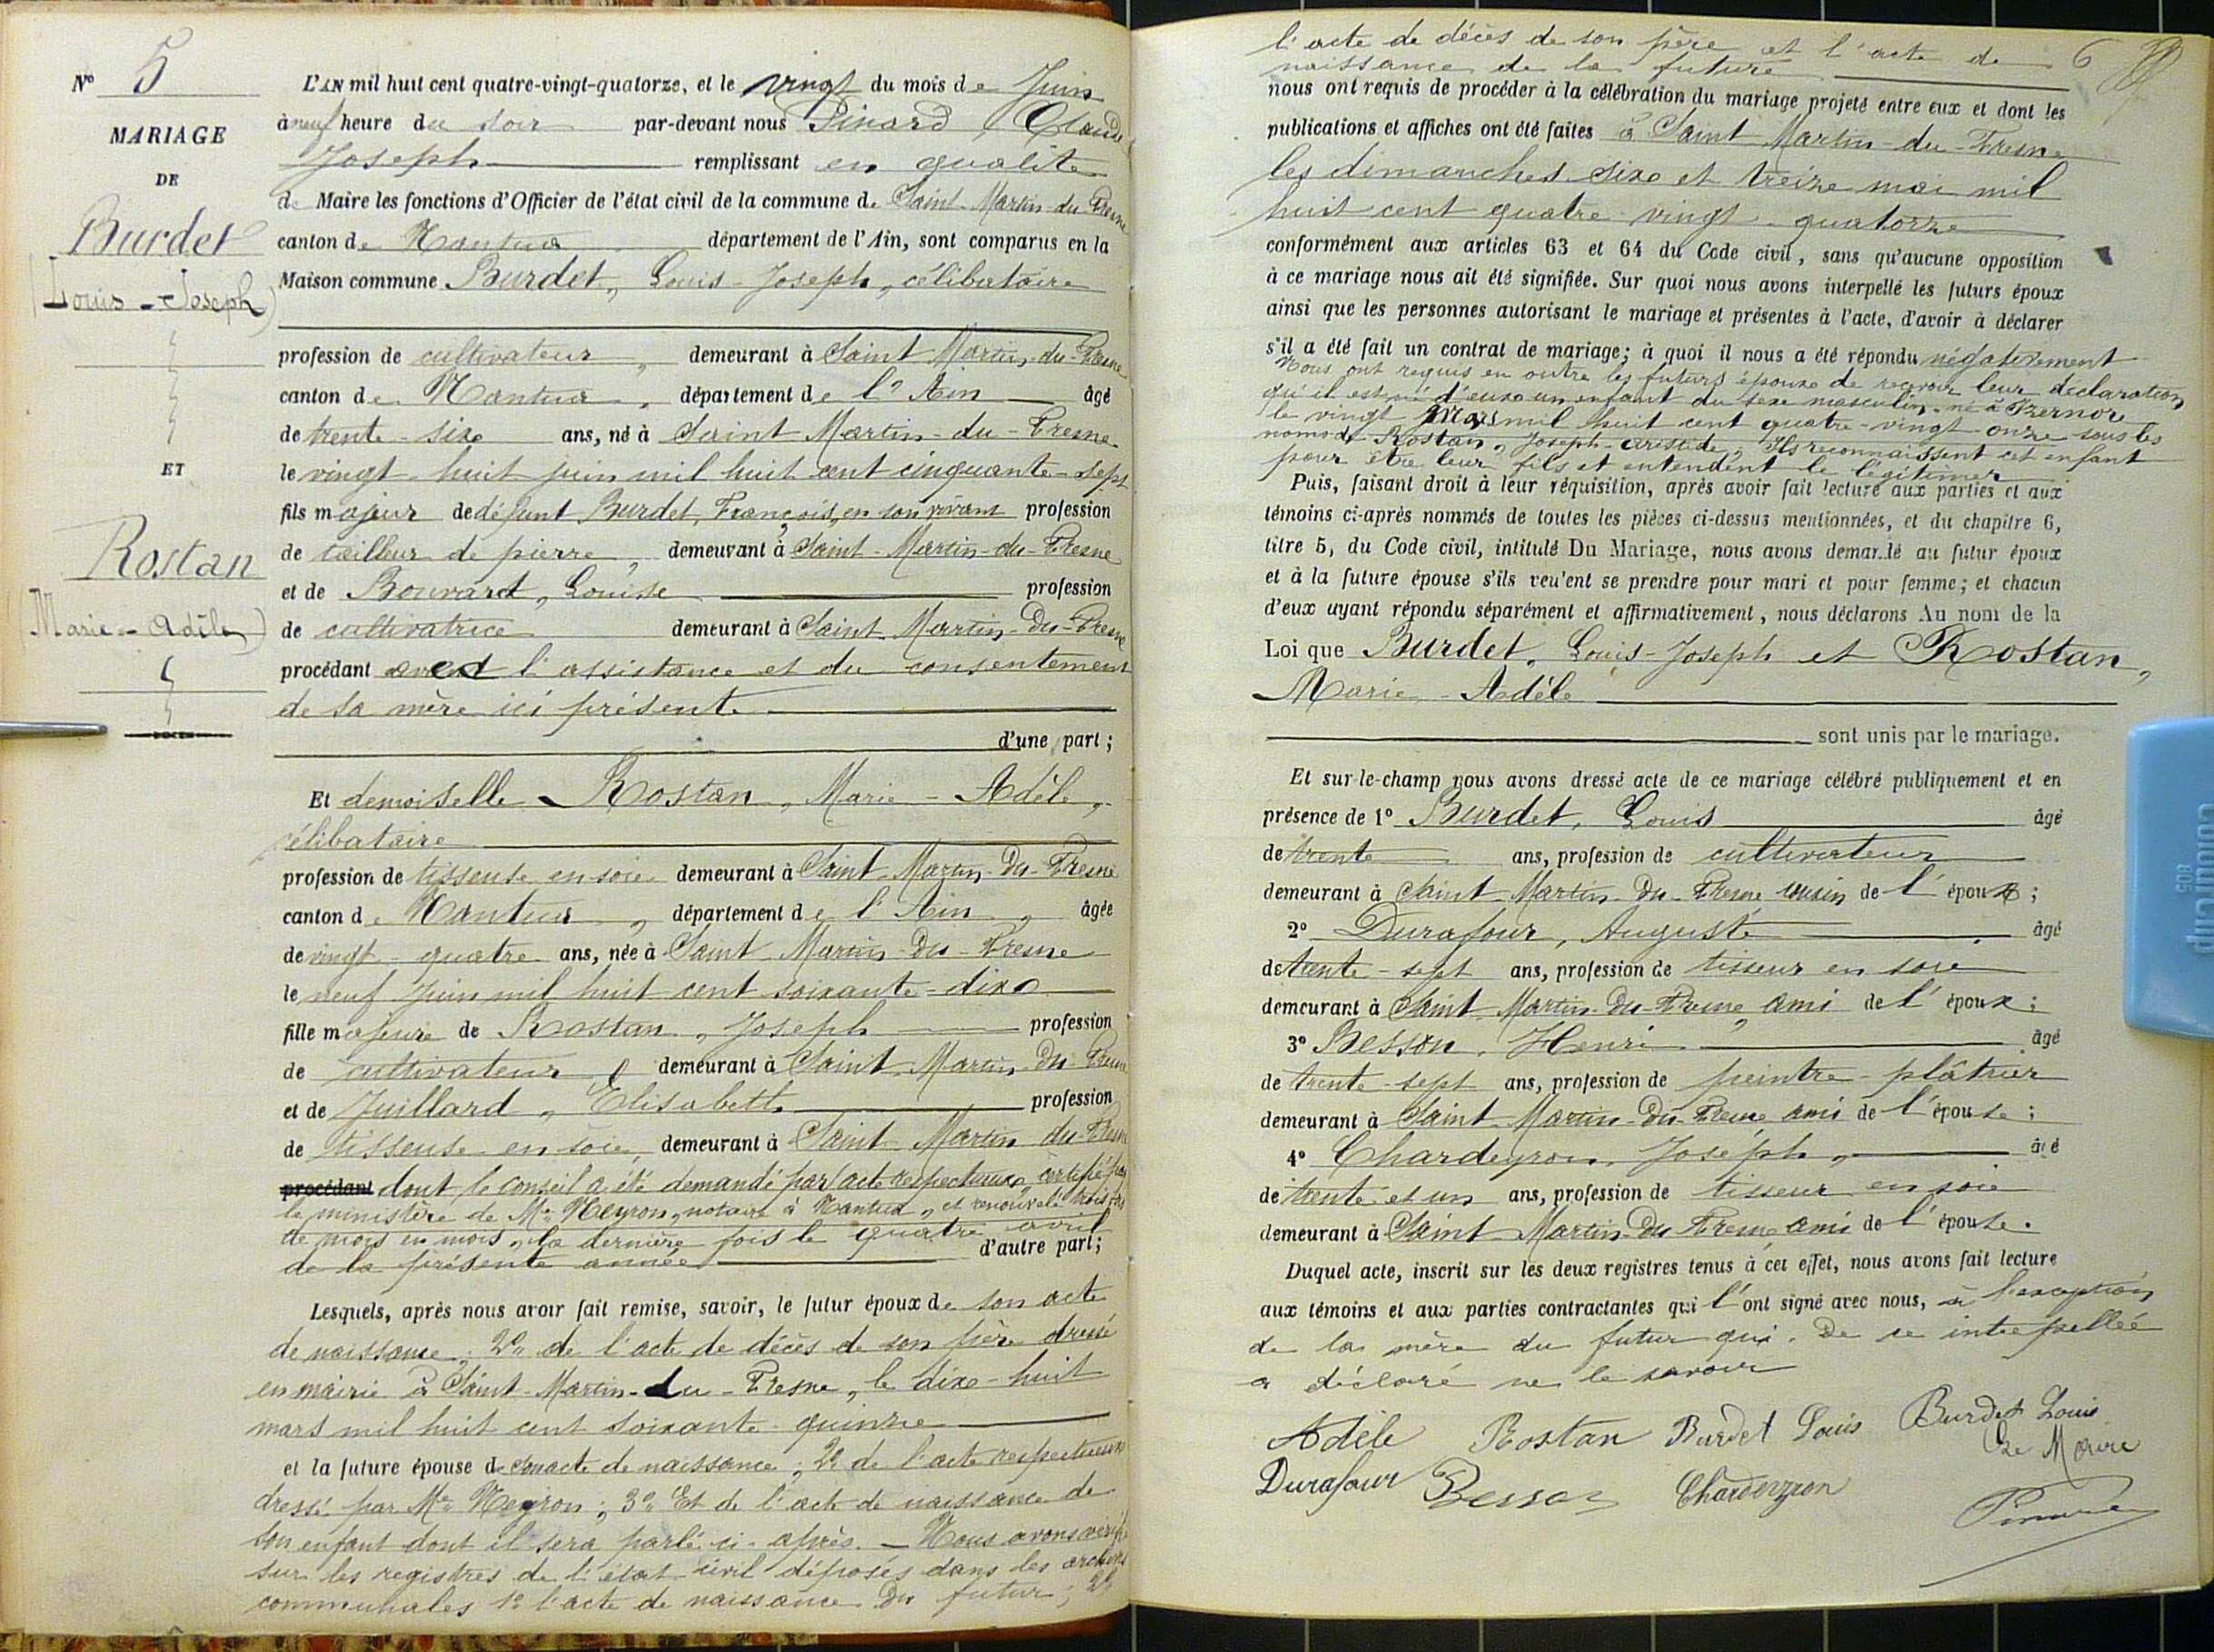 N° 5
MARIAGE
DE
Burdet
(Louis-Joseph)
ET
Rostan
Marie-Adèle)
L'AN mil huit cent quatre-vingt-quatorze, et le vingt du mois de Juin
à neuf heure du soir par-devant nous Pinard Claude
Joseph remplissant en qualité
de Maire les fonctions d'Officier de l'état civil de la commune de Saint-Martin-du-Fresne
canton de Nantua département de l'Ain, sont comparus en la
Maison commune Burdet, Louis-Joseph, célibataire
profession de cultivateur, demeurant à Saint Martin-du-Fresne
canton de Nantua, département de l'Ain âgé
de trente-six ans, né à Saint Martin-du-Fresne
le vingt-huit juin mil huit cent cinquante-sept
fils majeur de défunt Burdet, François, en son vivant profession
de tailleur de pierre, demeurant à Saint-Martin-du-Fresne
et de Bouvard, Louise profession
de cultivatrice demeurant à Saint Martin-Du-Fresne
procédant avec l'assistance et du consentement
de sa mère ici présente
d'une part;
Et demoiselle Rostan, Marie-Adèle,
célibataire
profession de tisseuse en soie demeurant à Saint Martin-Du-Fresne
canton de Nantua, département de l'Ain, âgée
de vingt-quatre ans, née à Saint Martin-Du-Fresne
le neuf Juin mil huit cent soixante-dix
fille majeure de Rostan, Joseph profession
de cultivateur, demeurant à Saint Martin-Du-Fresne
et de Juillard, Elisabeth profession
de tisseuse en soie, demeurant à Saint Martin du-Fresne
procédant dont le conseil a été demandé par acte respectueux, certifié par
le ministère de Me Neyron, notaire à Nantua, et renouvelé trois fois
de mois en mois, la dernière fois le quatre avril
de la présente année d'autre part;
Lesquels, après nous avoir fait remise, savoir, le futur époux de son acte
de naissance; 2° de l'acte de décès de son père dressé
en mairie à Saint-Martin-du-Fresne, le dix-huit
mars mil huit cent soixante-quinze
et la future épouse de son acte de naissance; 2° de l'acte respectueux
dressé par Me Neyron; 3° Et de l'acte de naissance de
son enfant dont il sera parlé ci-après. — Nous avons vérifié
sur les registres de l'état civil déposés dans les archives
communales 1° l'acte de naissance Du futur; 2°
l'acte de décès de son père et l'acte de 6
naissance de la future
nous ont requis de procéder à la célébration du mariage projeté entre eux et dont les
publications et affiches ont été faites à Saint Martin-du-Fresne
les dimanches six et treize mai mil
huit cent quatre-vingt-quatorze
conformément aux articles 63 et 64 du Code civil, sans qu'aucune opposition
à ce mariage nous ait été signifiée. Sur quoi nous avons interpellé les futurs époux
ainsi que les personnes autorisant le mariage et présentes à l'acte, d'avoir à déclarer
s'il a été fait un contrat de mariage; à quoi il nous a été répondu négativement
Nous ont requis en outre les futurs époux de recevoir leur déclaration
qu'il est né d'eux un enfant du sexe masculin, né à Izernore
le vingt Mars mil huit cent quatre-vingt onze sous les
noms de Rostan, Joseph-aristide, Ils reconnaissent cet enfant
pour être leur fils et entendent le légitimer
Puis, faisant droit à leur réquisition, après avoir fait lecture aux parties et aux
témoins ci-après nommés de toutes les pièces ci-dessus mentionnées, et du chapitre 6,
titre 5, du Code civil, intitulé Du Mariage, nous avons demandé au futur époux
et à la future épouse s'ils veulent se prendre pour mari et pour femme; et chacun
d'eux ayant répondu séparément et affirmativement, nous déclarons Au nom de la
Loi que Burdet, Louis-Joseph et Rostan,
Marie-Adèle
sont unis par le mariage.
Et sur-le-champ nous avons dressé acte de ce mariage célébré publiquement et en
présence de 1° Burdet, Louis âgé
de trente ans, profession de cultivateur
demeurant à Saint Martin-Du-Fresne cousin de l'époux;
2° Durafour, Auguste âgé
de trente-sept ans, profession de tisseur en soie
demeurant à Saint Martin-Du-Fresne, ami de l'époux;
3° Besson, Henri âgé
de trente-sept ans, profession de peintre-plâtrier
demeurant à Saint Martin-Du-Fresne ami de l'épouse;
4° Chardeyron, Joseph, âgé
de trente et un ans, profession de tisseur en soie
demeurant à Saint Martin-Du Fresne ami de l'épouse.
Duquel acte, inscrit sur les deux registres tenus à cet effet, nous avons fait lecture
aux témoins et aux parties contractantes qui l'ont signé avec nous, à l'exception
de la mère du futur qui. De ce interpellée
a déclaré ne le savoir
Adèle Rostan Burdet Louis Burdet Louis
Le Maire
Durafour Besson Chardeyron
Pinard